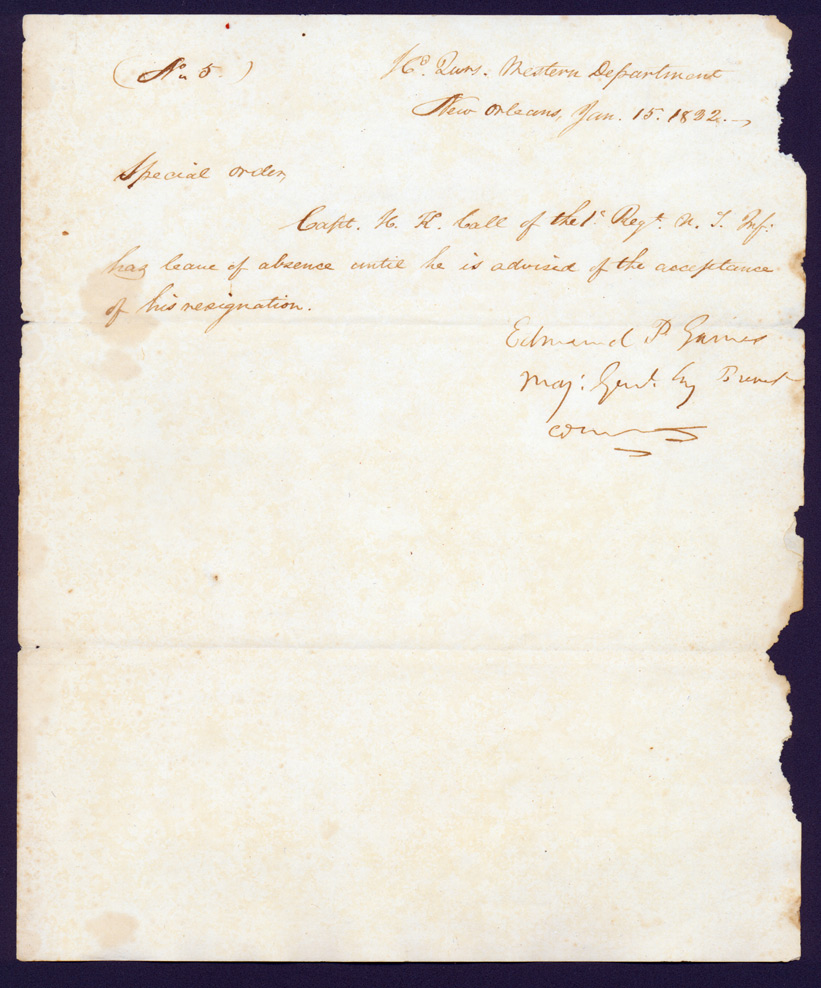 (No. 5.)
Hd. Qurs. Western Department
New Orleans, Jan. 15. 1822.
Special order,
Capt. R. K. Call of the 1st Regt. U. S. Inf:
has leave of absence until he is advised of the acceptance
of his resignation.
Edmund P Gaines
Maj: Genl. by Brevet